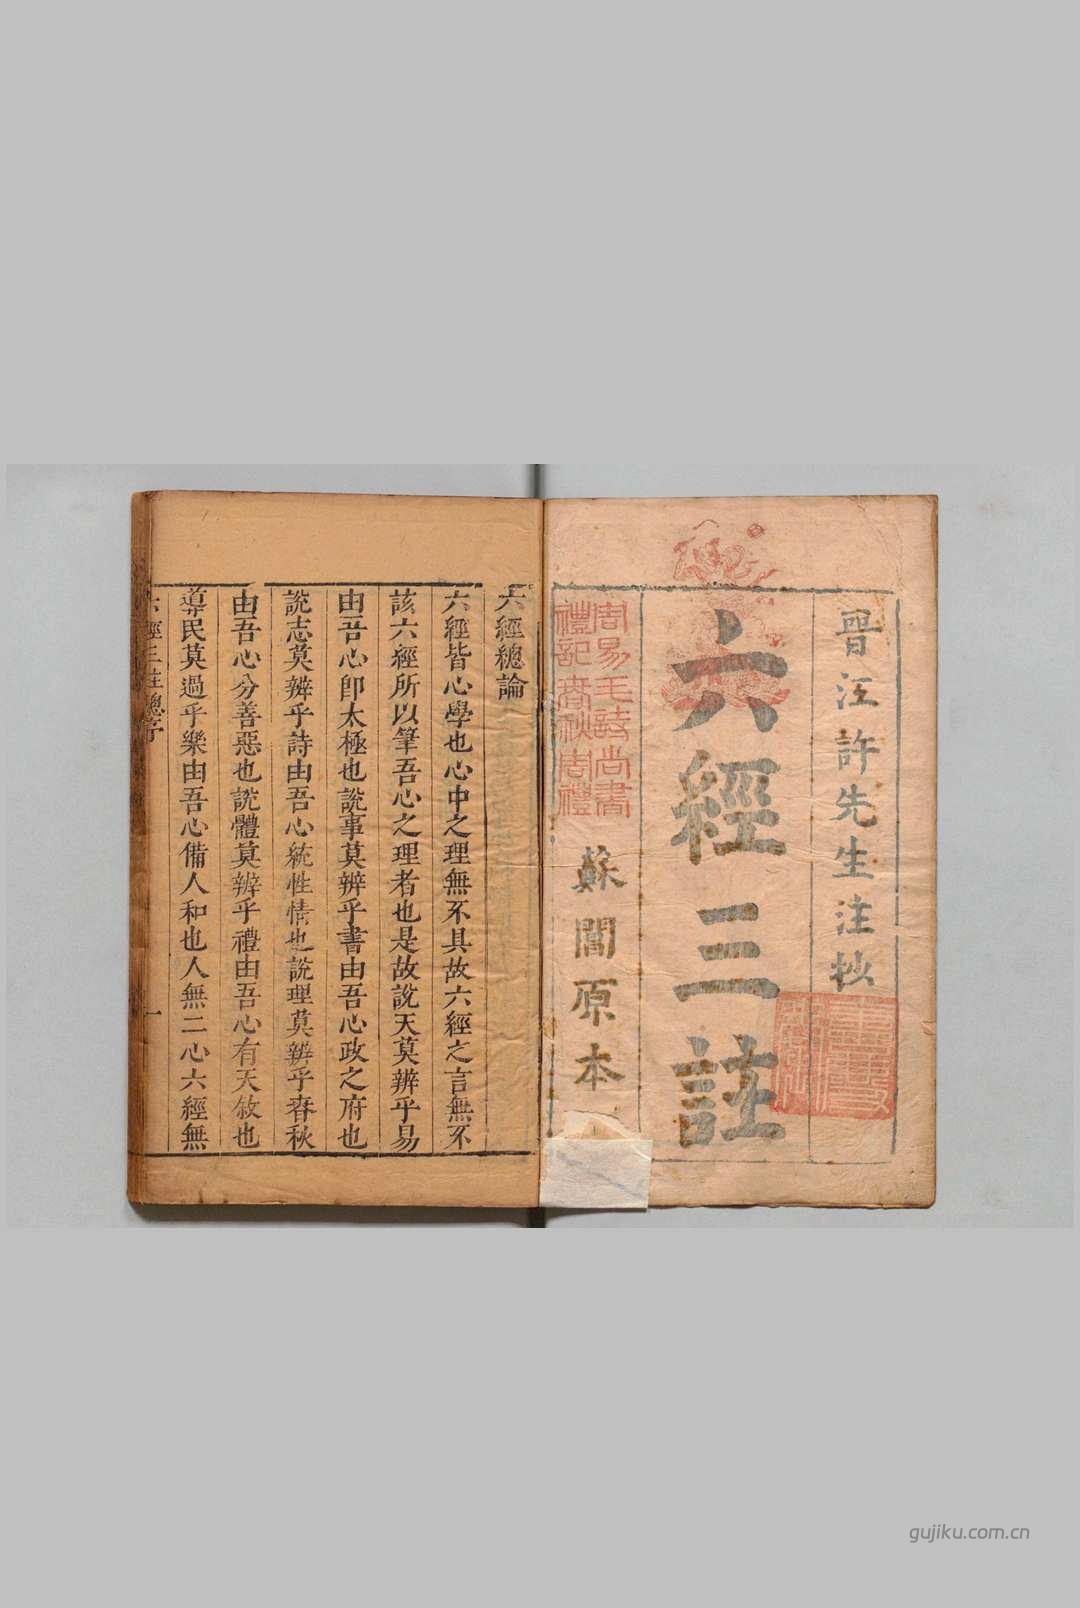 晉江許先生注抄
六經三註
周易毛詩尚書
禮記春秋周禮
蘇閶原本
六經總論
六經皆心學也心中之理無不具故六經之言無不
該六經所以筆吾心之理者也是故說天莫辨乎易
由吾心卽太極也說事莫辨乎書由吾心政之府也
說志莫辨乎詩由吾心統性情也說理莫辨乎春秋
由吾心分善惡也說體莫辨乎禮由吾心有天敘也
導民莫過乎樂由吾心備人和也人無二心六經無
六經三註總序
一
gujiku.com.cn